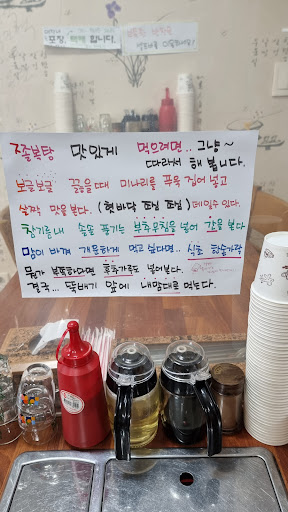 포장, 택배 합니다.
졸복탕 맛있게 먹으려면.. 그냥~
따라서 해 봅니다.
보글보글 끓을때 미나리를 푸욱 집어 넣고
살짝 맛을 본다. (혓바닥 조심 조심) 데일수 있다.
참기름내 솔솔 풍기는 부추무침을 넣어 간을 본다
맘이 바껴 개운하게 먹고 싶다면.. 식초 한숟가락
뭔가 부족하다면 후추가루도 넣어본다.
결국... 뚝배기 앞에 내맘대로 먹는다.